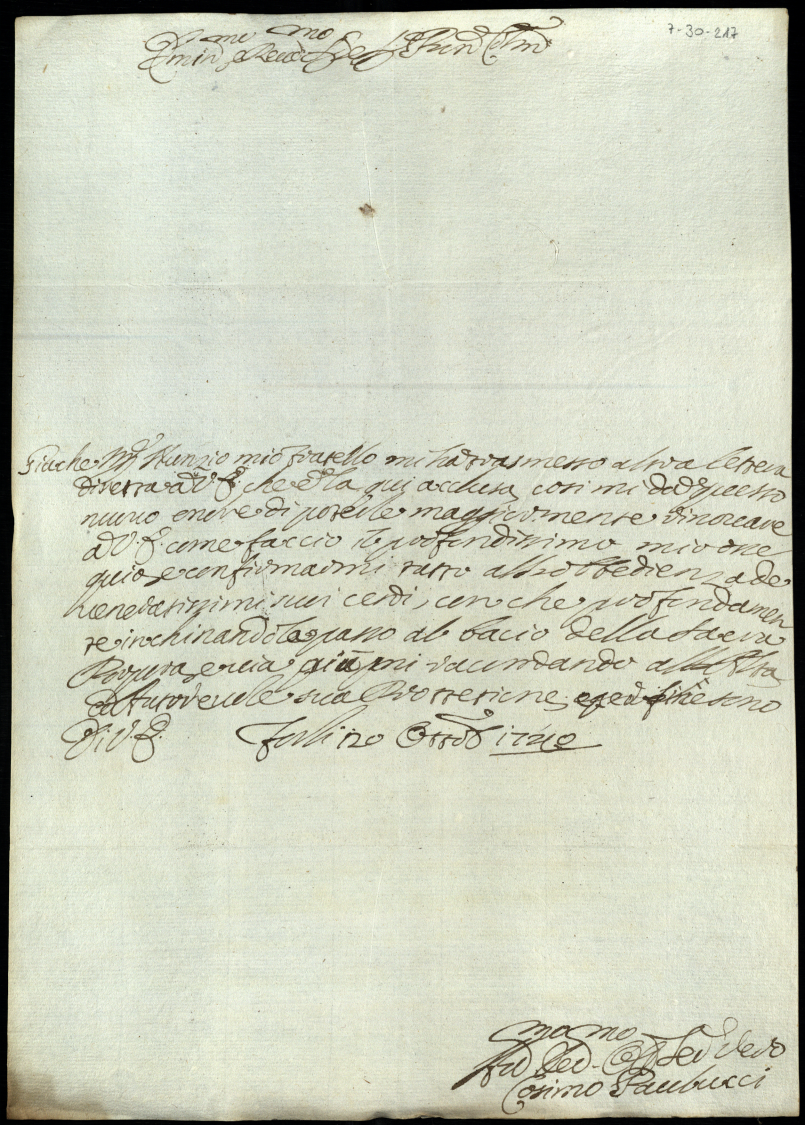 7-30-217
Em.mo e Rev.mo Sig.re Sig.re Pron Col.mo
Giache Mg.r Nunzio mio fratello mi ha trasmesso altra lettera
diretta à V. E. che è la qui acclusa, cosi mi dà questo
nuovo onore di potere maggiormente rinovare
à V. E. come faccio il profondissimo mio osse
quio, e confirmarmi tutto all'obbedienza de
veneratissimi suoi cenni, con che profondamen
te inchinandole passo al bacio della Sacra
Porpora, e via più mi racomando all'Alta
ed autorevole sua Protettione, sono
Di V. E. Forlì 20 Ottob 1740
mo mo
Cosimo Paulucci